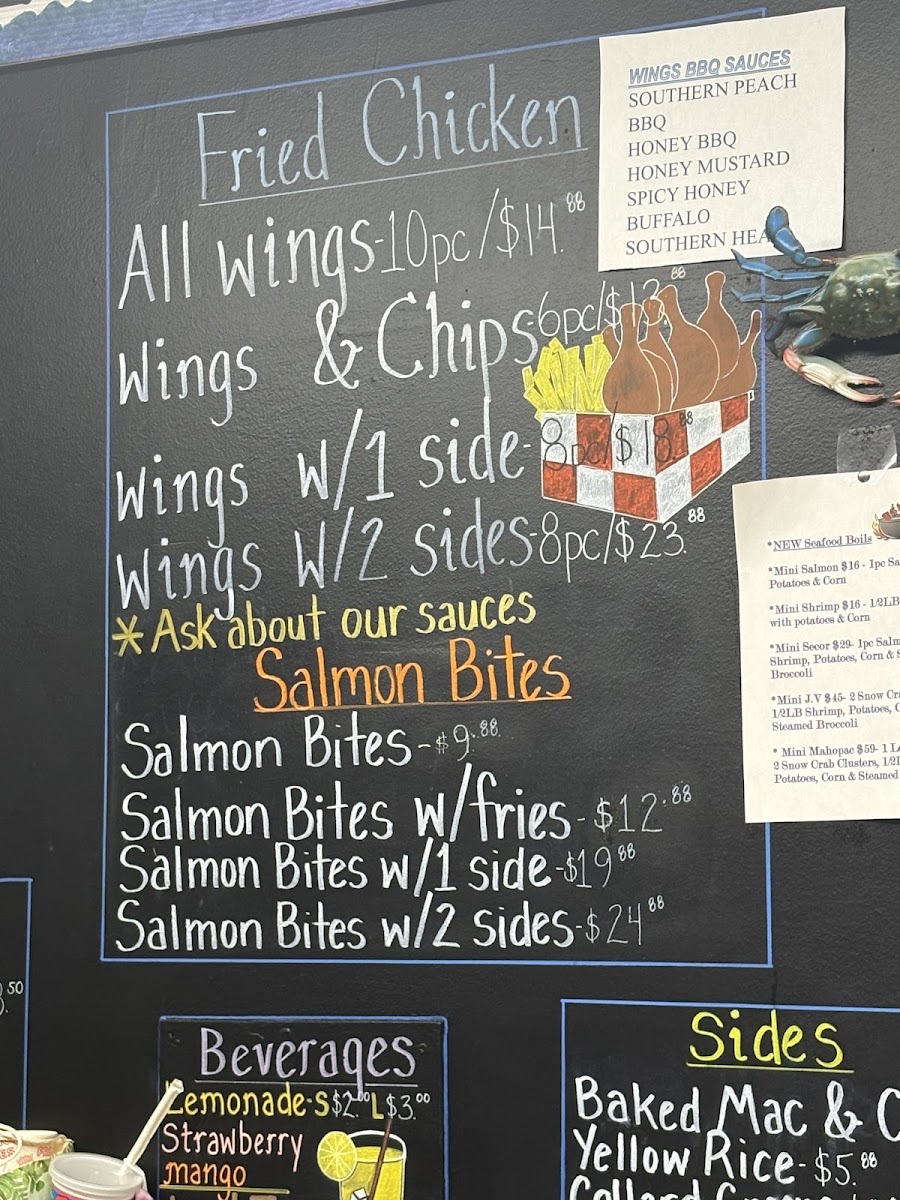 Fried Chicken
All wings-10pc/$14.88
Wings & Chips-6pc/$13.88
Wings w/1 side-8pc/$18.88
Wings W/2 sides-8pc/$23.88
*Ask about our sauces
Salmon Bites
Salmon Bites-$9.88
Salmon Bites w/fries-$12.88
Salmon Bites w/1 side-$19.88
Salmon Bites w/2 sides-$24.88
WINGS BBQ SAUCES
SOUTHERN PEACH
BBQ
HONEY BBQ
HONEY MUSTARD
SPICY HONEY
BUFFALO
SOUTHERN
*NEW Seafood Boils
*Mini Salmon $16 - 1pc
Potatoes & Corn
*Mini Shrimp $16 - 1/2LB
with potatoes & Corn
*Mini Secor $29- 1pc
Shrimp, Potatoes, Corn &
Broccoli
*Mini J.V $45- 2 Snow
1/2LB Shrimp, Potatoes,
Steamed Broccoli
* Mini Mahopac $59- 1
2 Snow Crab Clusters,
Potatoes, Corn & Steamed
.50
Beverages
Lemonade-S$2.00 L$3.00
Strawberry
mango
Sides
Baked Mac &
Yellow Rice-$5.88
Collard